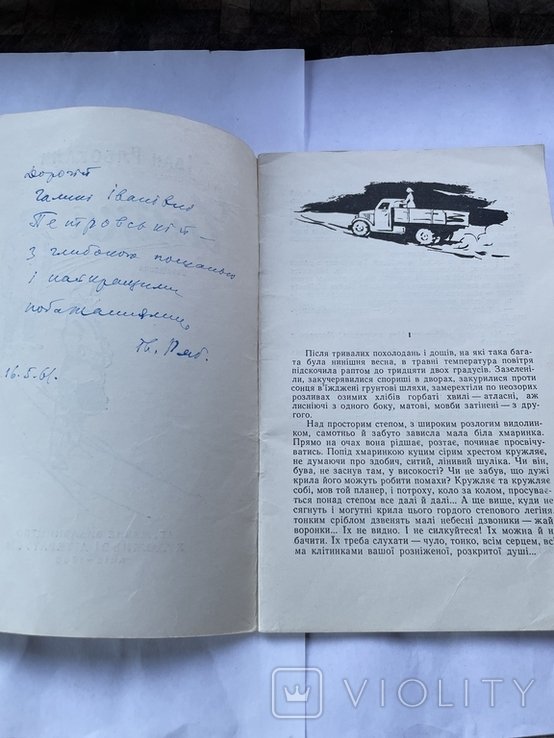 Дорогій
Галині Іванівні
Петровській —
з глибокою пошаною
і найкращими
побажаннями,
Ів. Ряб.
16.5.61.
1
Після тривалих похолодань і дощів, на які така бага-
та була нинішня весна, в травні температура повітря
підскочила раптом до тридцяти двох градусів. Зазелені-
ли, закучерявилися спориші в дворах, закурилися проти
сонця в'їжджені ґрунтові шляхи, замерехтіли по неозорих
розливах озимих хлібів горбаті хвилі — атласні, аж
лисніючі з одного боку, матові, мовби затінені — з дру-
гого.
Над просторим степом, з широким розлогим видолин-
ком, самотньо й забуто зависла мала біла хмаринка.
Прямо на очах вона рідшає, розтає, починає просвічу-
ватись. Попід хмаринкою куцим сірим хрестом кружляє,
не думаючи про здобич, ситий, лінивий шуліка. Чи він,
бува, не заснув там, у високості? Чи не забув, що дужі
крила його можуть робити помахи? Кружляє та кружляє
собі, мов той планер, і потроху, коло за колом, просуває-
ться понад степом все далі й далі... А ще вище, куди не
сягнуть і могутні крила цього гордого степового легіня,
тонким сріблом дзвенять малі небесні дзвоники — жай
воронки... Їх не видно. І не силкуйтеся! Їх можна й н
бачити. Їх треба слухати — чуло, тонко, всім серцем, вс
ма клітинками вашої розніженої, розкритої душі...
VIOLITY